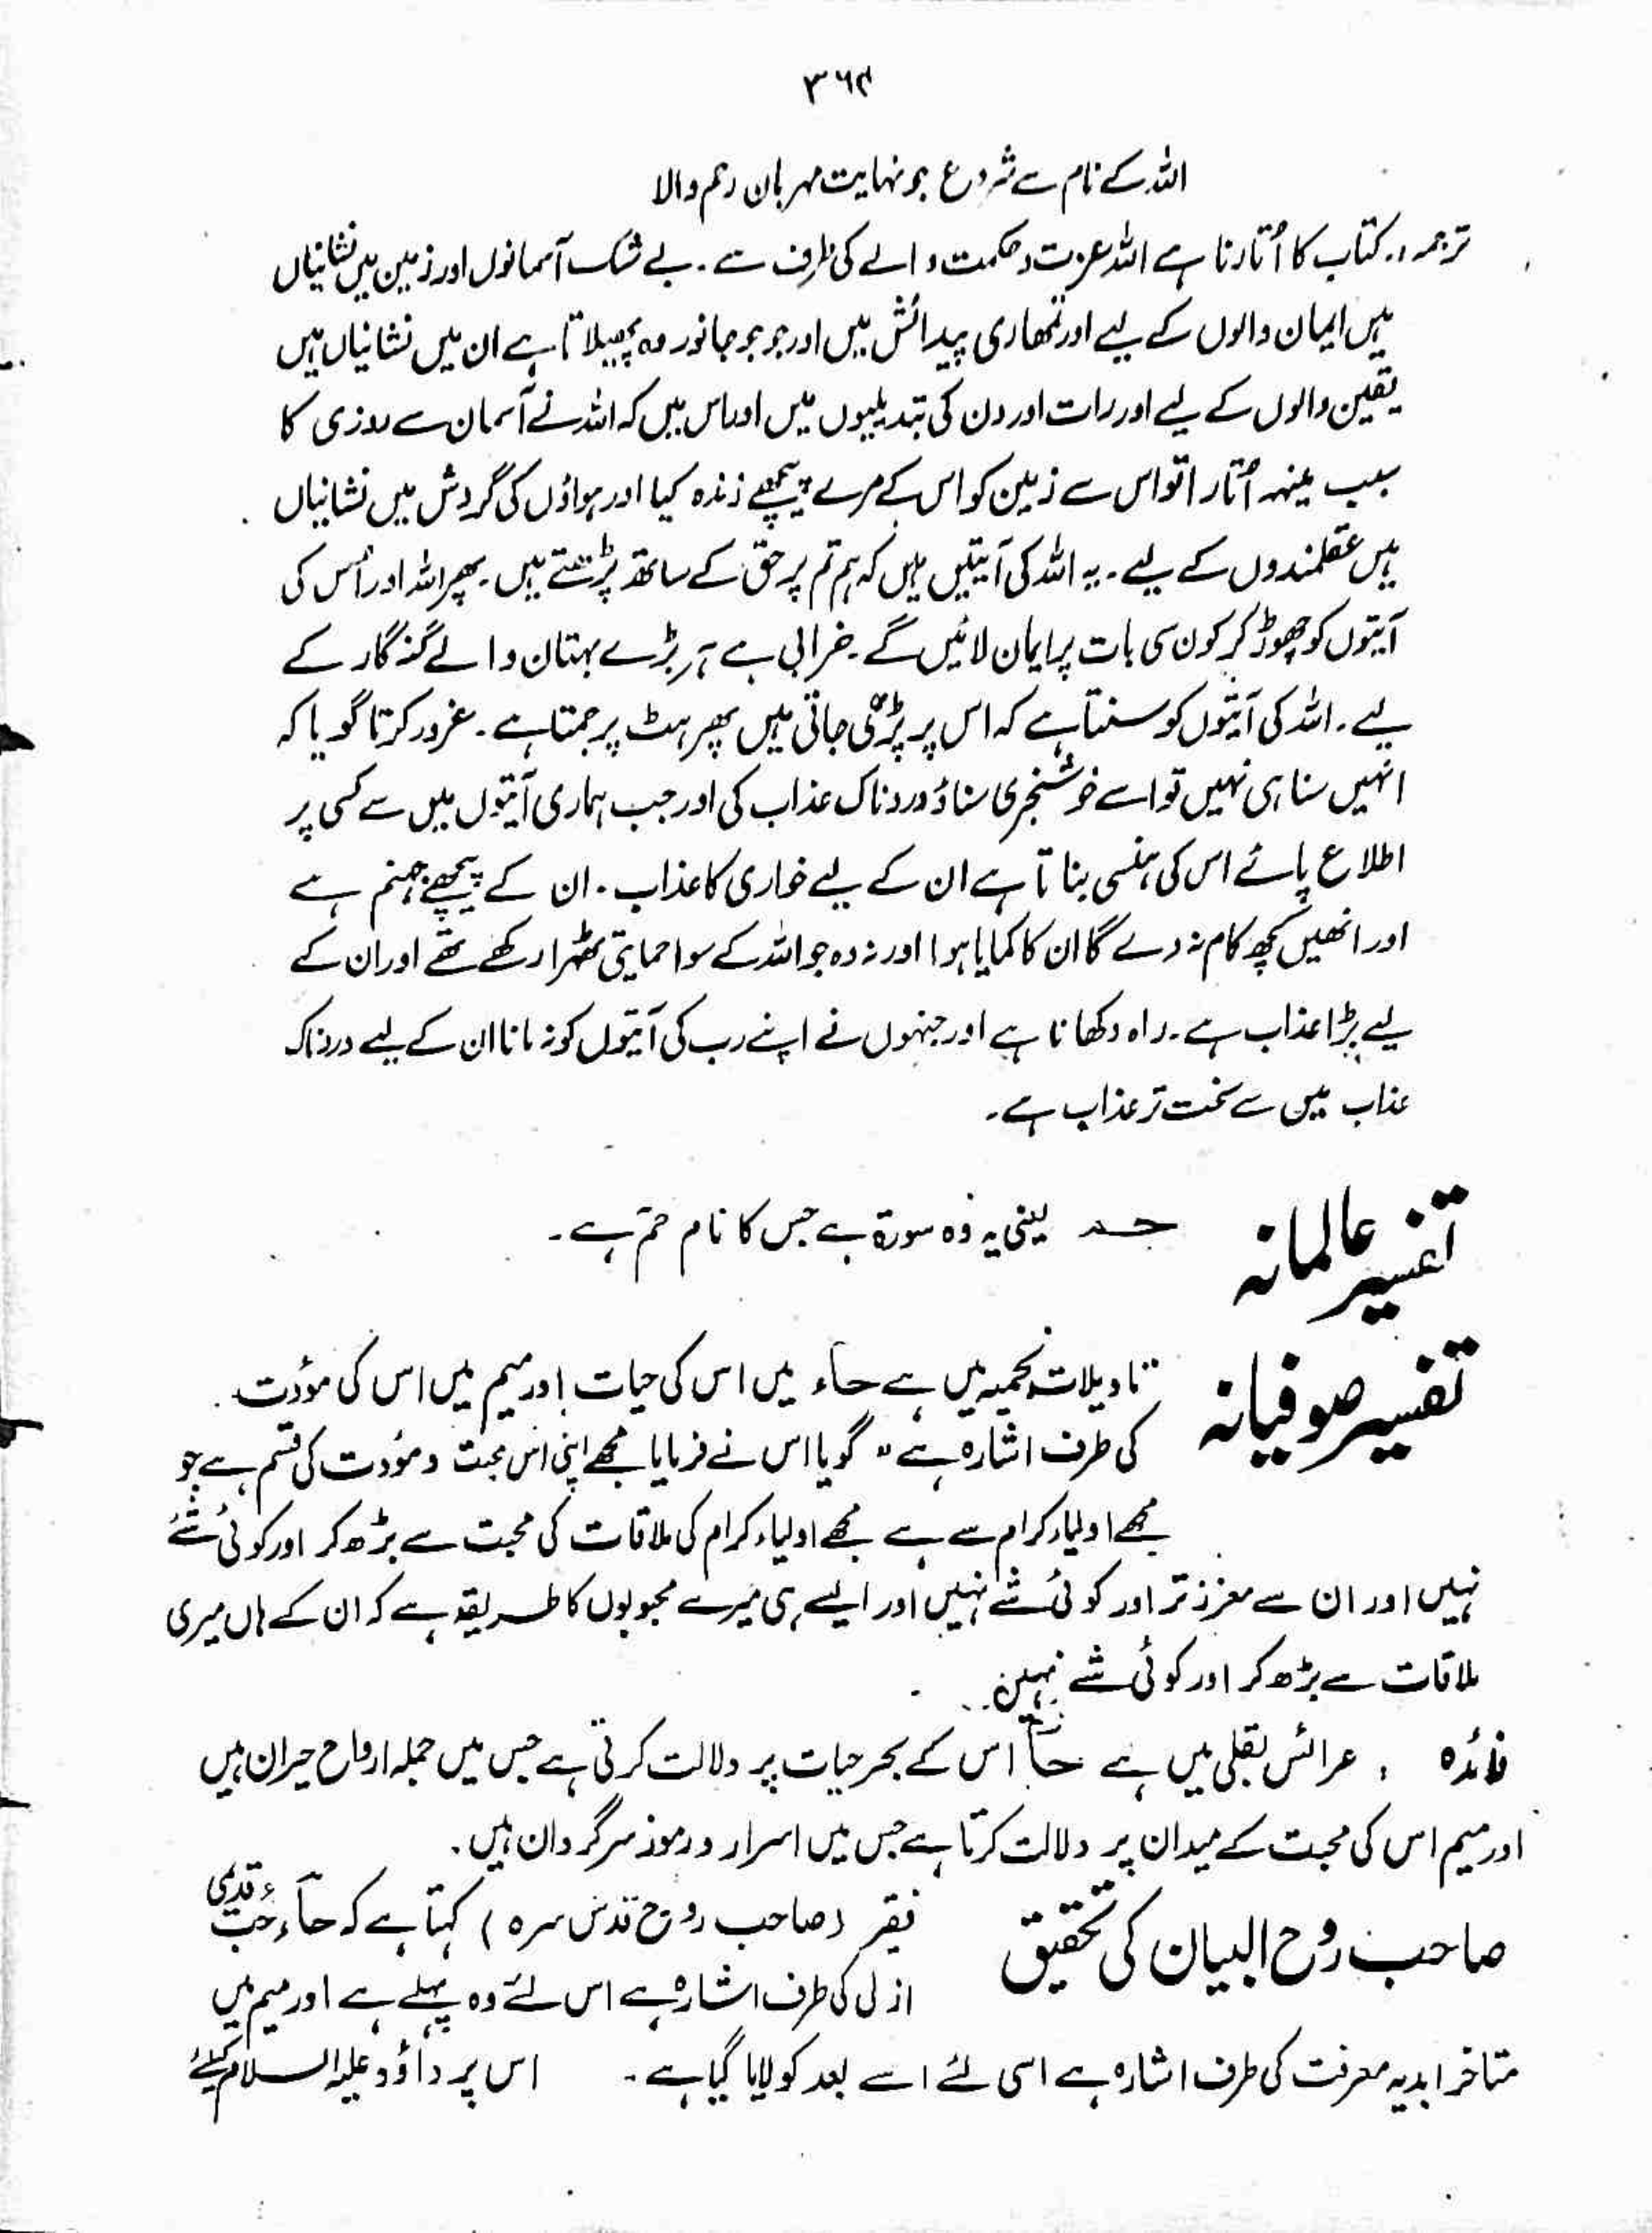 ۳۶۴
اللہ کے نام سے شروع جو نہایت مہربان رحم والا
ترجمہ :۔ کتاب کا اُتارنا ہے اللہ عزت و حکمت والے کی طرف سے ۔ بے شک آسمانوں اور زمین میں نشانیاں
ہیں ایمان والوں کے لیے اور تمھاری پیدائش میں اور جو جو جانور وہ پھیلاتا ہے ان میں نشانیاں ہیں
یقین والوں کے لیے اور رات اور دن کی تبدیلیوں میں اور اس میں کہ اللہ نے آسمان سے روزی کا
سبب مینہہ اُتارا تو اس سے زمین کو اس کے مرے پیچھے زندہ کیا اور ہواؤں کی گردش میں نشانیاں
ہیں عقلمندوں کے لیے ۔ یہ اللہ کی آیتیں ہیں کہ ہم تم پر حق کے ساتھ پڑھتے ہیں ۔ پھر اللہ اور اُس کی
آیتوں کو چھوڑ کر کون سی بات پر ایمان لائیں گے ۔ خرابی ہے ہر بڑے بہتان والے گنہگار کے
لیے ۔ اللہ کی آیتوں کو سنتا ہے کہ اس پر پڑھی جاتی ہیں پھر ہٹ پر جمتا ہے ۔ غرور کرتا گویا کہ
انہیں سنا ہی نہیں تو اسے خوشخبری سناؤ دردناک عذاب کی اور جب ہماری آیتوں میں سے کسی پر
اطلاع پائے اس کی ہنسی بناتا ہے ان کے لیے خواری کا عذاب ۔ ان کے پیچھے جہنم ہے
اور انھیں کچھ کام نہ دے گا ان کا کمایا ہوا اور نہ وہ جو اللہ کے سوا حمایتی ٹھہرا رکھے تھے اور ان کے
لیے بڑا عذاب ہے ۔ راہ دکھانا ہے اور جنہوں نے اپنے رب کی آیتوں کو نہ مانا ان کے لیے دردناک
عذاب میں سے سخت تر عذاب ہے ۔
تفسیر عالمانہ حٰم یعنی یہ وہ سورۃ ہے جس کا نام حٰمٓ ہے ۔
تفسیر صوفیانہ تاویلات نجمیہ میں ہے حاء میں اس کی حیات اور میم میں اس کی مودّت
کی طرف اشارہ ہے " گویا اس نے فرمایا مجھے اپنی اس محبت و مودت کی قسم ہے جو
مجھے اولیاء کرام سے ہے مجھے اولیاء کرام کی ملاقات کی محبت سے بڑھ کر اور کوئی شے
نہیں اور ان سے معزز تر اور کوئی شے نہیں اور ایسے ہی میرے محبوبوں کا طریقہ ہے کہ ان کے ہاں میری
ملاقات سے بڑھ کر اور کوئی شے نہیں ۔
فائدہ : عرائس بقلی میں ہے حآ اس کے بحر حیات پر دلالت کرتی ہے جس میں جملہ ارواح حیران ہیں
اور میم اس کی محبت کے میدان پر دلالت کرتا ہے جس میں اسرار و رموز سرگردان ہیں ۔
صاحب روح البیان کی تحقیق فقیر (صاحب روح قدس سرہ) کہتا ہے کہ حآء حب قدیمی
ازلی کی طرف اشارہ ہے اس لئے وہ پہلے ہے اور میم میں
متاخر ابدیہ معرفت کی طرف اشارہ ہے اسی لئے اسے بعد کو لایا گیا ہے ۔ اس پر داؤد علیہ السلام کیلئے